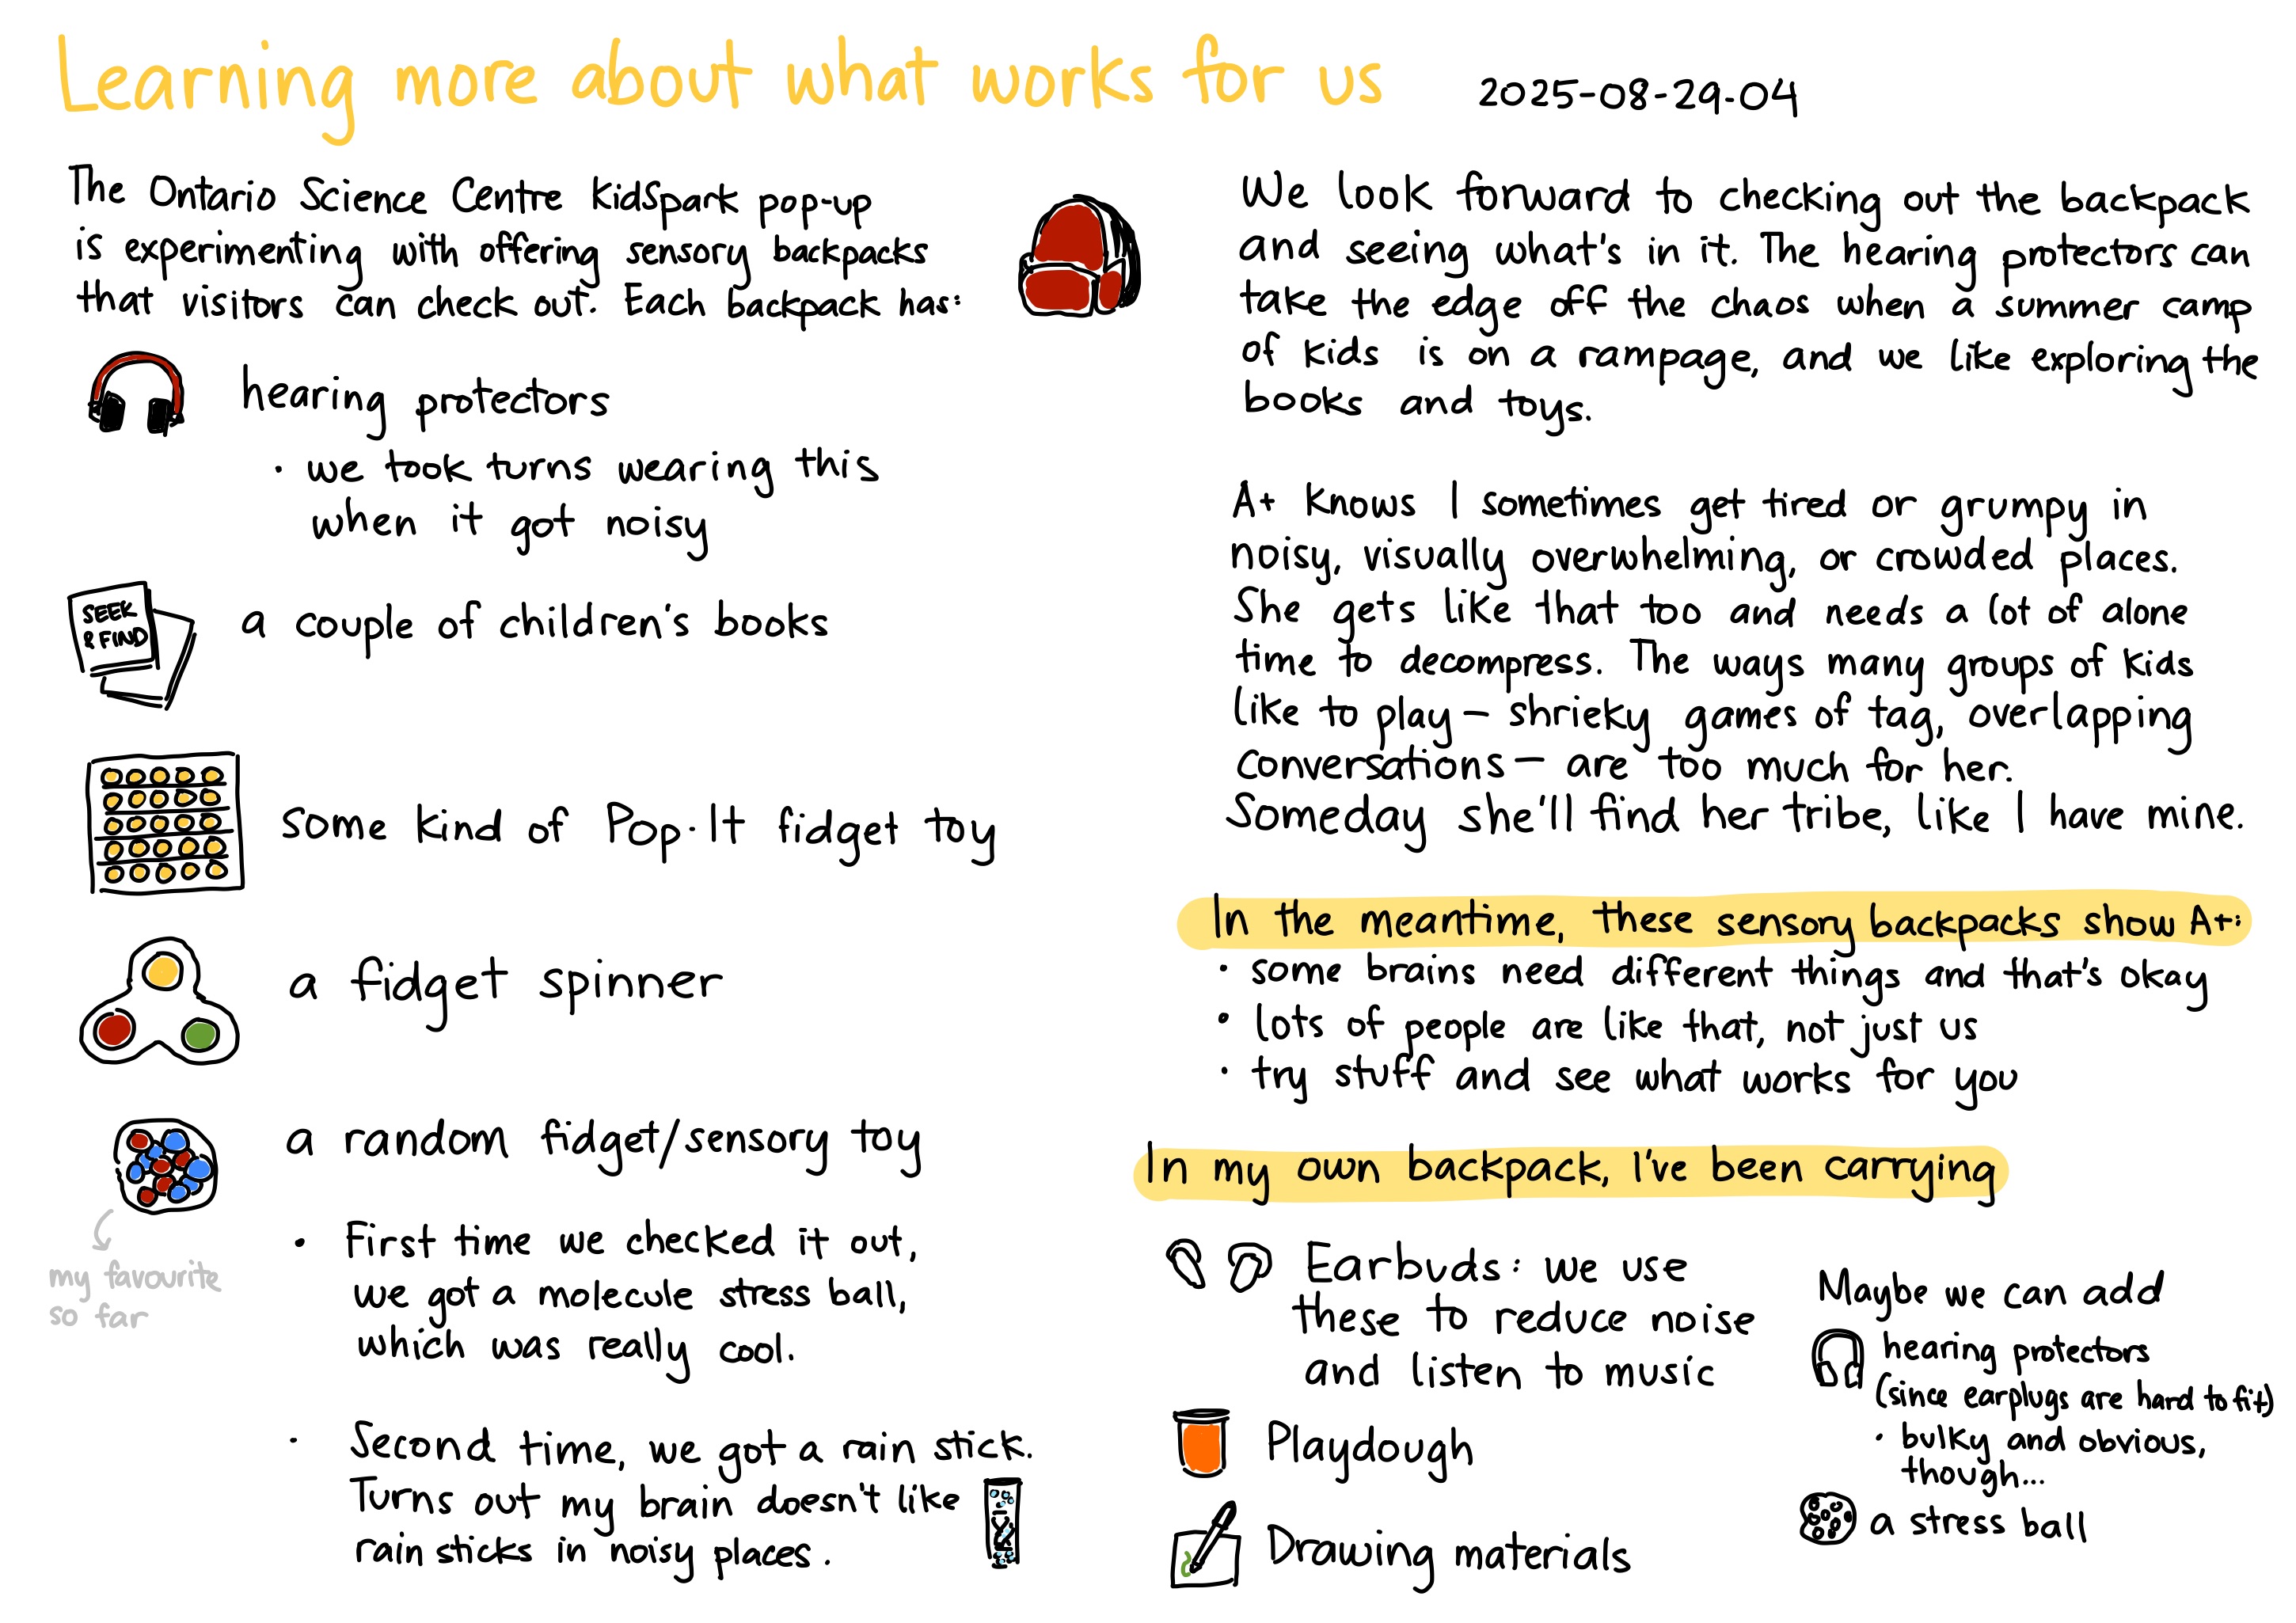 Learning more about what works for us
2025-08-29-04
The Ontario Science Centre KidSpark pop-up
is experimenting with offering sensory backpacks
that visitors can check out. Each backpack has:
hearing protectors
• we took turns wearing this
when it got noisy
SEEK
& FIND
a couple of children's books
some kind of Pop-It fidget toy
a fidget spinner
a random fidget/sensory toy
my favourite
so far
• First time we checked it out,
we got a molecule stress ball,
which was really cool.
• Second time, we got a rain stick.
Turns out my brain doesn't like
rain sticks in noisy places.
We look forward to checking out the backpack
and seeing what's in it. The hearing protectors can
take the edge off the chaos when a summer camp
of kids is on a rampage, and we like exploring the
books and toys.
A+ knows I sometimes get tired or grumpy in
noisy, visually overwhelming, or crowded places.
She gets like that too and needs a lot of alone
time to decompress. The ways many groups of kids
like to play – shrieky games of tag, overlapping
conversations – are too much for her.
Someday she'll find her tribe, like I have mine.
In the meantime, these sensory backpacks show A+:
• some brains need different things and that's okay
• lots of people are like that, not just us
• try stuff and see what works for you
In my own backpack, I've been carrying
Earbuds: we use
these to reduce noise
and listen to music
Playdough
Drawing materials
Maybe we can add
hearing protectors
(since earplugs are hard to fit)
• bulky and obvious,
though...
a stress ball